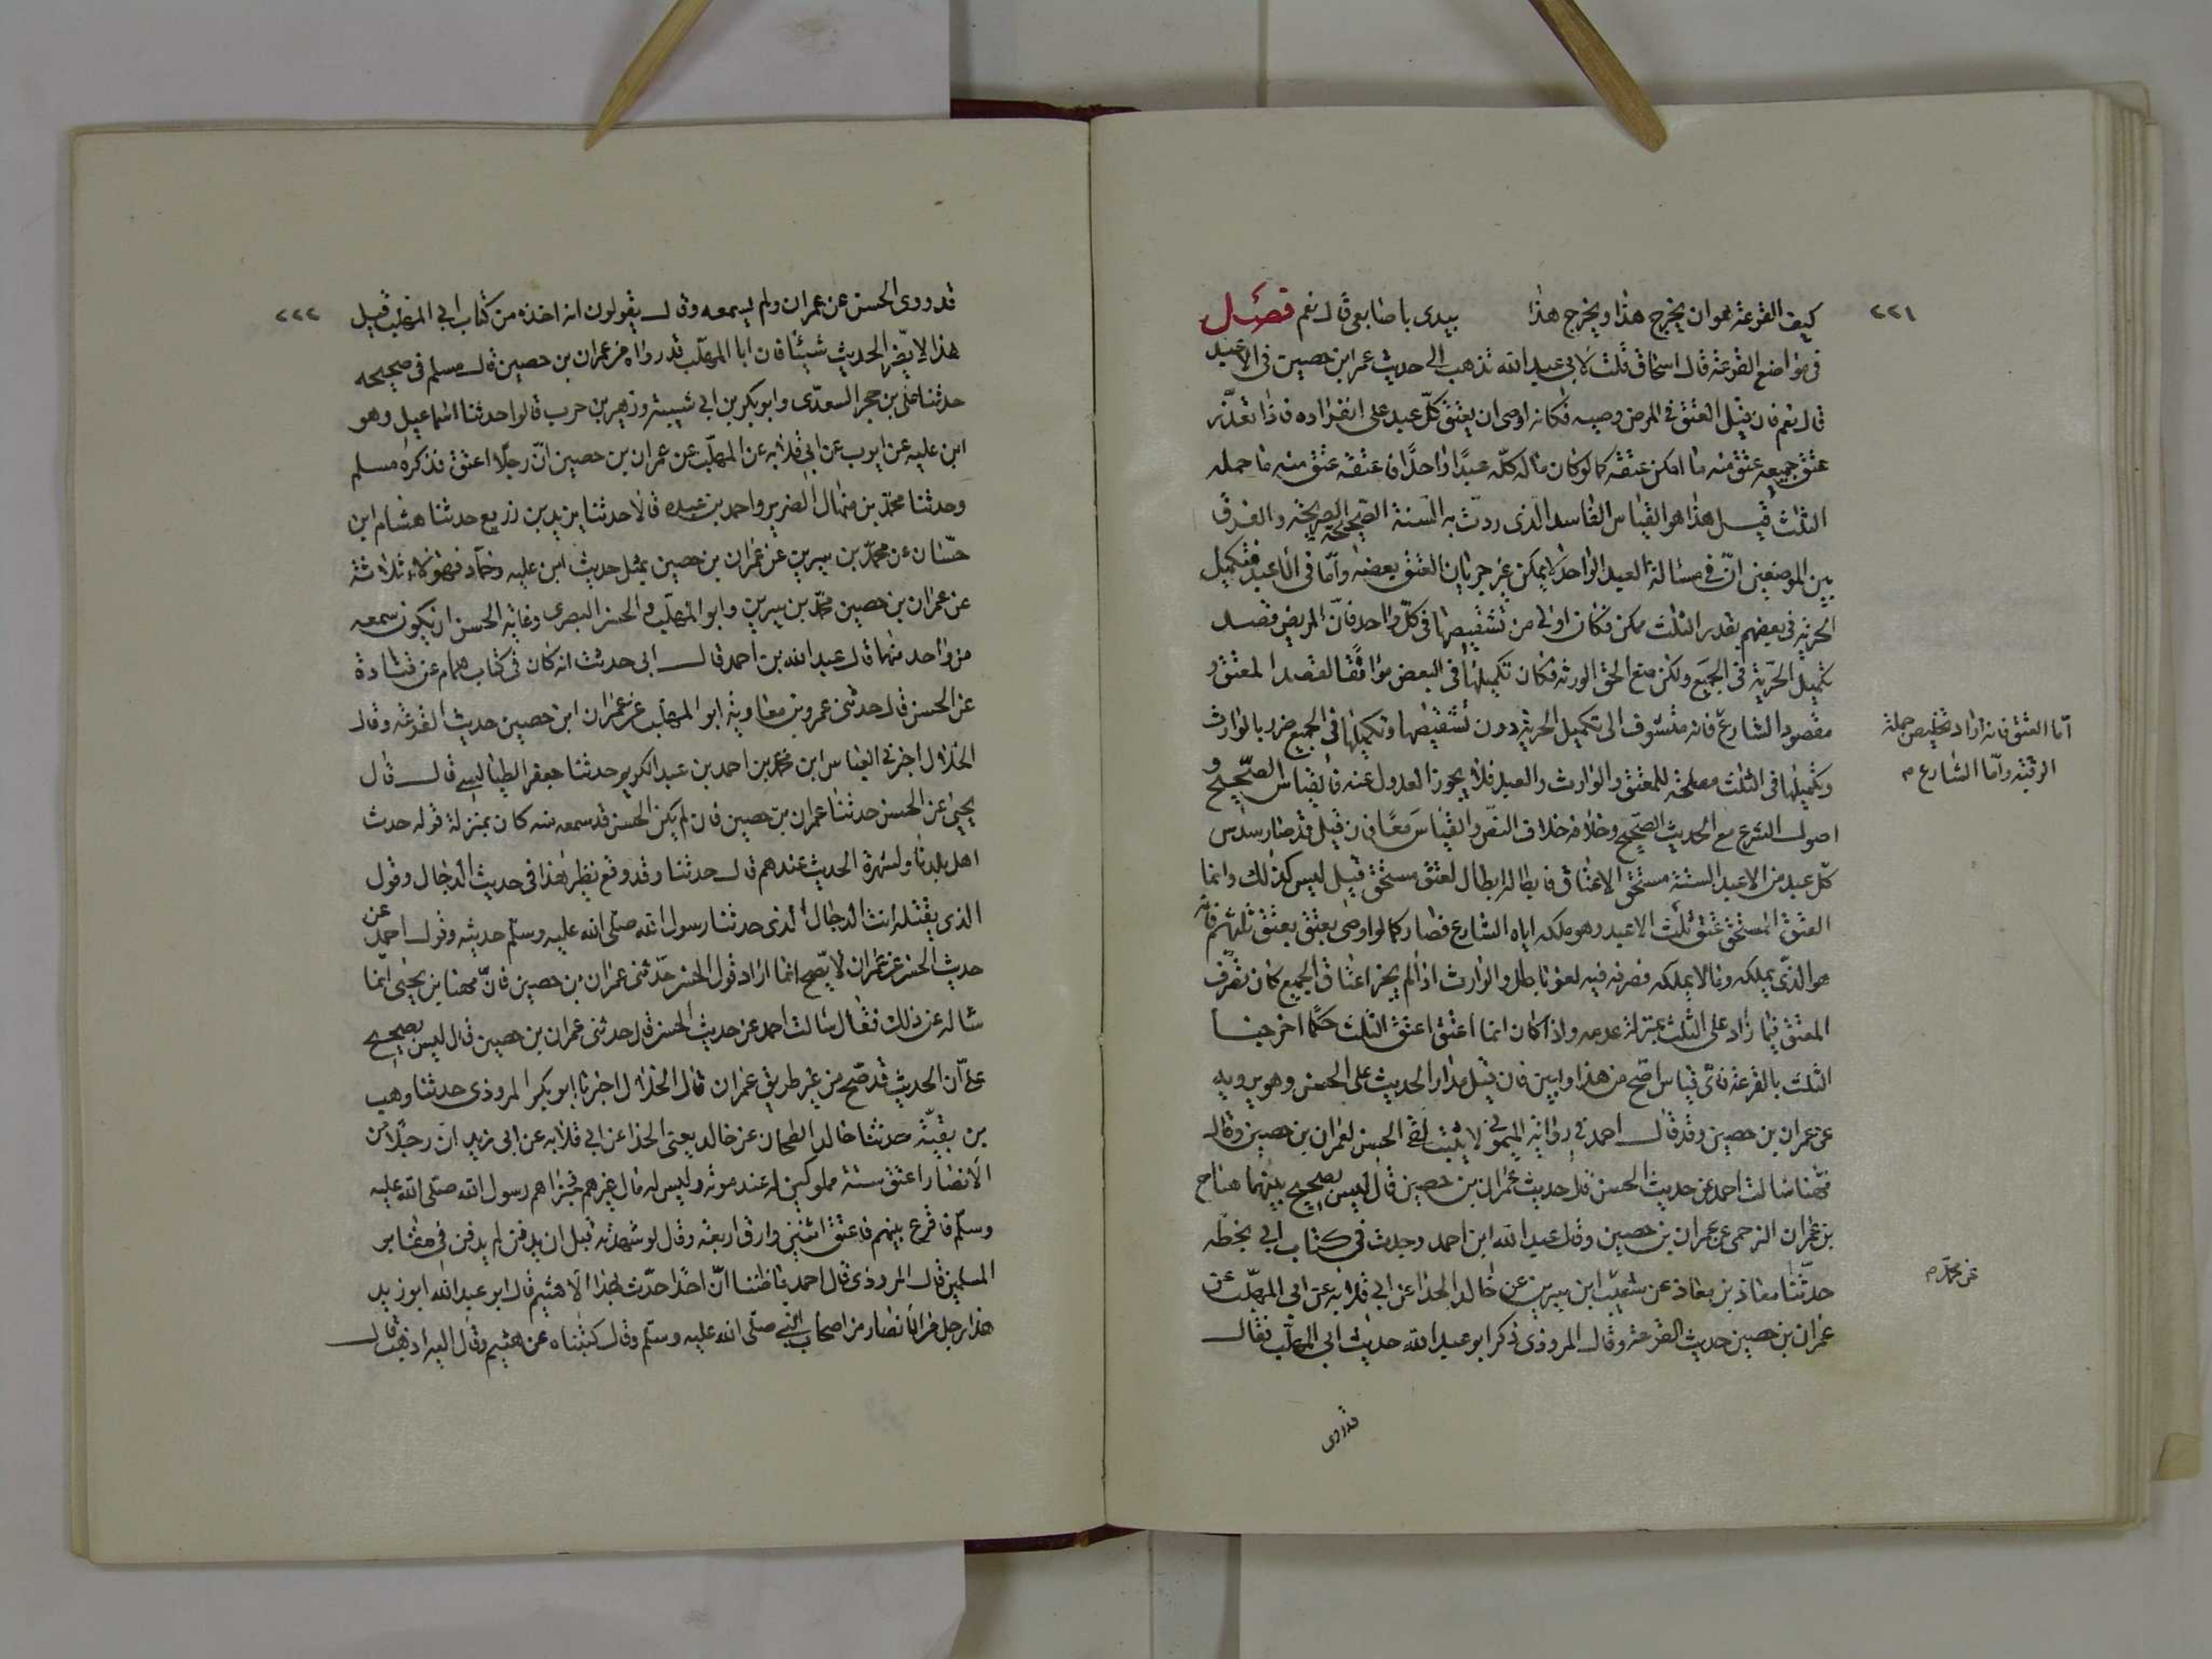 ٢٢١
كيف القرعة هو ان يخرج هذا ويخرج هذا بيدى باصابعى قال نعم فصل
فى مواضع القرعة قال اسحاق قلت لابى عبد الله تذهب الى حديث عمران بن حصين فى الاعبد
قال نعم فان قيل العتق فى المرض وصيه فكانه اوصى ان يعتق كلّ عبد على انفراده فاذا تعذّر
عتق جميعه عتق منه ما امكن عتقه كما لو كان ماله كلّه عبدًا واحدًا فاعتقه عتق منه ما حمله
الثلث قيل هذا هو القياس الفاسد الذى ردّت به السنة الصحيحة الصريحة والفرق
بين الموضعين انّ فى مسالة العبد الواحد لا يمكن غير جريان العتق بعضه وامّا فى الاعبد فتكميل
الحرّية فى بعضهم بقدر الثلث ممكن فكان اولى من تشقيصها فى كلّ واحد فانّ المريض قصد
تكميل الحرّية فى الجميع ولكن منع الحق الورثه فكان تكميلها فى البعض موافقًا لقصد المعتق و
مقصود الشارع فانه متشوف الى تكميل الحرية دون تشقيصها وتكميلها فى الجميع ضرر بالوارث
امّا العتق فانه اراد تخليص جملة
الرقبة وامّا الشارع م
وتكميلها فى الثلث مصلحة للمعتق والوارث والعبد فلا يجوز العدول عنه فالقياس الصحّيح و
اصول الشرع مع الحديث الصّحيح وخلافه خلاف النصّ والقياس معًا فان قيل قد صار سدس
كلّ عبد من الاعبد الستّة مستحق الاعتاق فابطاله ابطال لعتق مستحق قيل ليس كذلك وانما
العتق المستحق عتق ثلث الاعبد وهو ملكه اياه الشارع فصار كما لو اوصى بعتق يعتق ثلثهم فانّه
هو الذّى يملكه وما لا يملكه فصرفه فيه لغو باطل والوارث اذا لم يجز اعتاق الجميع كان تصرّف
المعتق فيما زاد على الثلث بمنزلة عدمه واذا كان انما اعتق اعتق الثلث حكمًا اخرجنا
الثلث بالقرعة فاىّ قياس اصّح من هذا وابين فان قيل مدار الحديث على الحسن وهو يرويه
عن عمران بن حصين وقد قال احمد فى رواية الميمونى لا يثبت لقى الحسن لعمران بن حصين وقال
مهنا سالت احمد عن حديث الحسن قال حديث عمران بن حصين قال ليس بصحيح بينهما هياج
بن عمران البرجمى عن عمران بن حصين وقال عبد الله ابن احمد وجدت فى كتاب ابى بخطّه
حدّثنا معاذ بن معاذ عن شعيب ابن سيرين عن خالد الحذا عن ابى قلابه عن ابى المهلّب عن
عن محمّد م
عمران بن حصين حديث القرعة وقال المروذى ذكر ابو عبد الله حديث ابى المهلّب فقال
قد روى
٢٢٢
قد روى الحسن عن عمران ولم يسمعه وقال يقولون انه اخذه من كتاب ابى المهلب قيل
هذا لا يضّر الحديث شيئًا فان ابا المهلّب قد رواه عن عمران بن حصين قال مسلم فى صحيحه
حدثنا على بن حجر السعدّى وابو بكر بن ابى شيبة وزهير بن حرب قالوا حدثنا اسماعيل وهو
ابن عليه عن ايوب عن ابى قلابه عن المهلّب عن عمران بن حصين انّ رجلًا اعتق فذكره مسلم
وحدثنا محمّد بن منهال الضرير واحمد بن عبده قالا حدثنا يزيد بن زريع حدثنا هشام ابن
حسّان عن محمّد بن سيرين عن عمران بن حصين بمثل حديث ابن عليه وحمّاد فهؤلاء ثلاثة
عن عمران بن حصين محمّد بن سيرين وابو المهلّب والحسن البصرى وغاية الحسن ان يكون سمعه
من واحد منها قال عبد الله بن احمد قال ابى حدثت انه كان فى كتاب همام عن قتادة
عن الحسن قال حدثنى عمرو بن معاوية ابو المهلّب عن عمران ابن حصين حديث القرعة وقال
الخلال اخبرنى العباس ابن محمّد بن احمد بن عبد الكريم حدثنا جعفر الطيالسى قال قال
يحيى عن الحسن حدثنا عمران بن حصين فان لم يكن الحسن قد سمعه منه كان بمنزلة قوله حدث
اهل بلدنا ولشهرة الحديث عندهم قال حدثنا وقد وقع نظير هذا فى حديث الدجال وقول
الذى يقتله انت الدجال الذى حدثنا رسول الله صلى الله عليه وسلّم حديثه وقول احمد عن
حديث الحسن عن عمران لا يصّح انما اراد قول الحسن حدّثنى عمران بن حصين فانّ مهنا بن يحيى انما
ساله عن ذلك فقال سالت احمد عن حديث الحسن قال حدثنى عمران بن حصين قال ليس بصحيح
على انّ الحديث قد صّح من غير طريق عمران قال الخلال اخبرنا ابو بكر المروذى حدثنا وهب
بن بقيّة حدثنا خالد الطحان عن خالد يعنى الحذا عن ابى قلابه عن ابى زيد انّ رجلًا من
الانصار اعتق ستة مملوكين له عند موته وليس له مال غيرهم فجزاهم رسول الله صلّى الله عليه
وسلّم فاقرع بينهم فاعتق اثنين وارق اربعة وقال لو شهدته قبل ان يدفن لم يدفن فى مقابر
المسلمين قال المروذى قال احمد ما ظننا انّ احدًا حدّث بهذا الا هشيم قال ابو عبد الله ابو زيد
هذا رجل من الانصار من اصحاب النبى صلّى الله عليه وسلّم وقال كتبناه عن هشيم وقال اليه اذهب قال